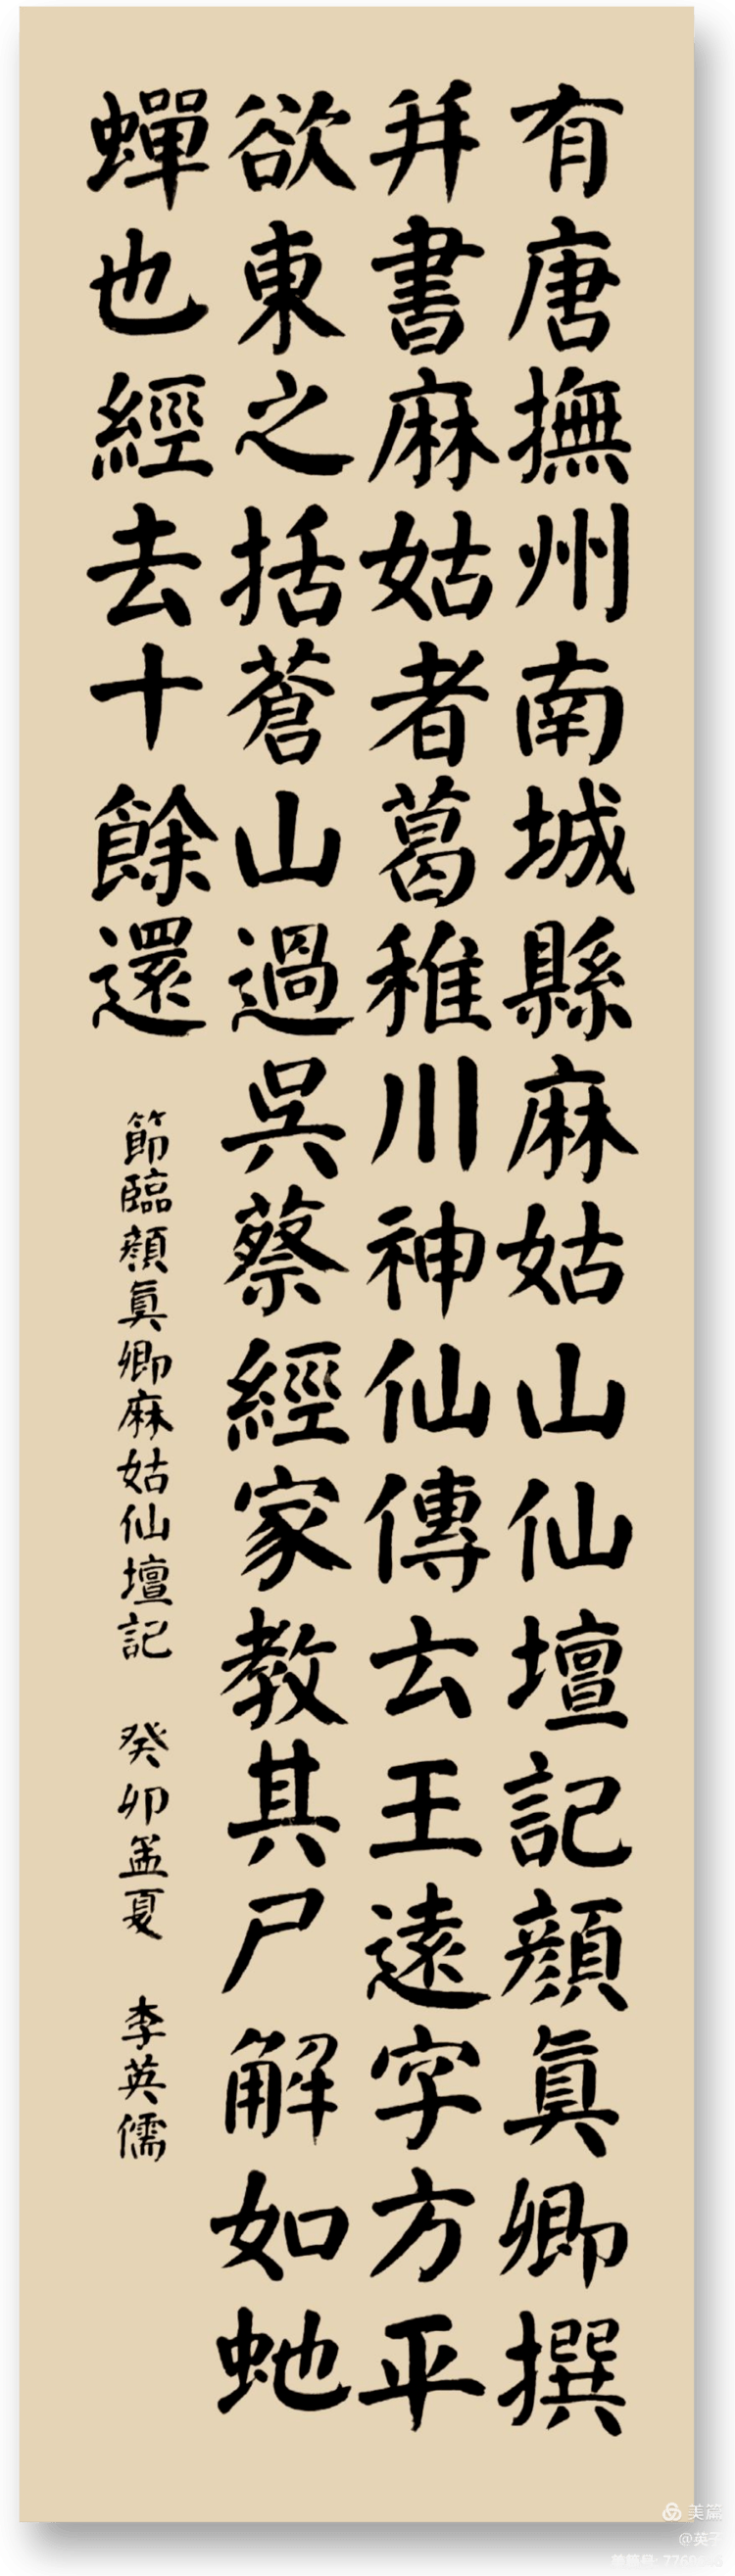 有唐撫州南城縣麻姑山仙壇記顏真卿撰
并書麻姑者葛稚川神仙傳云王遠字方平
欲東之括蒼山過吳蔡經家教其尸解如虵
蟬也經去十餘還
節臨顏真卿麻姑仙壇記 癸卯孟夏 李英儒
美篇
@英子